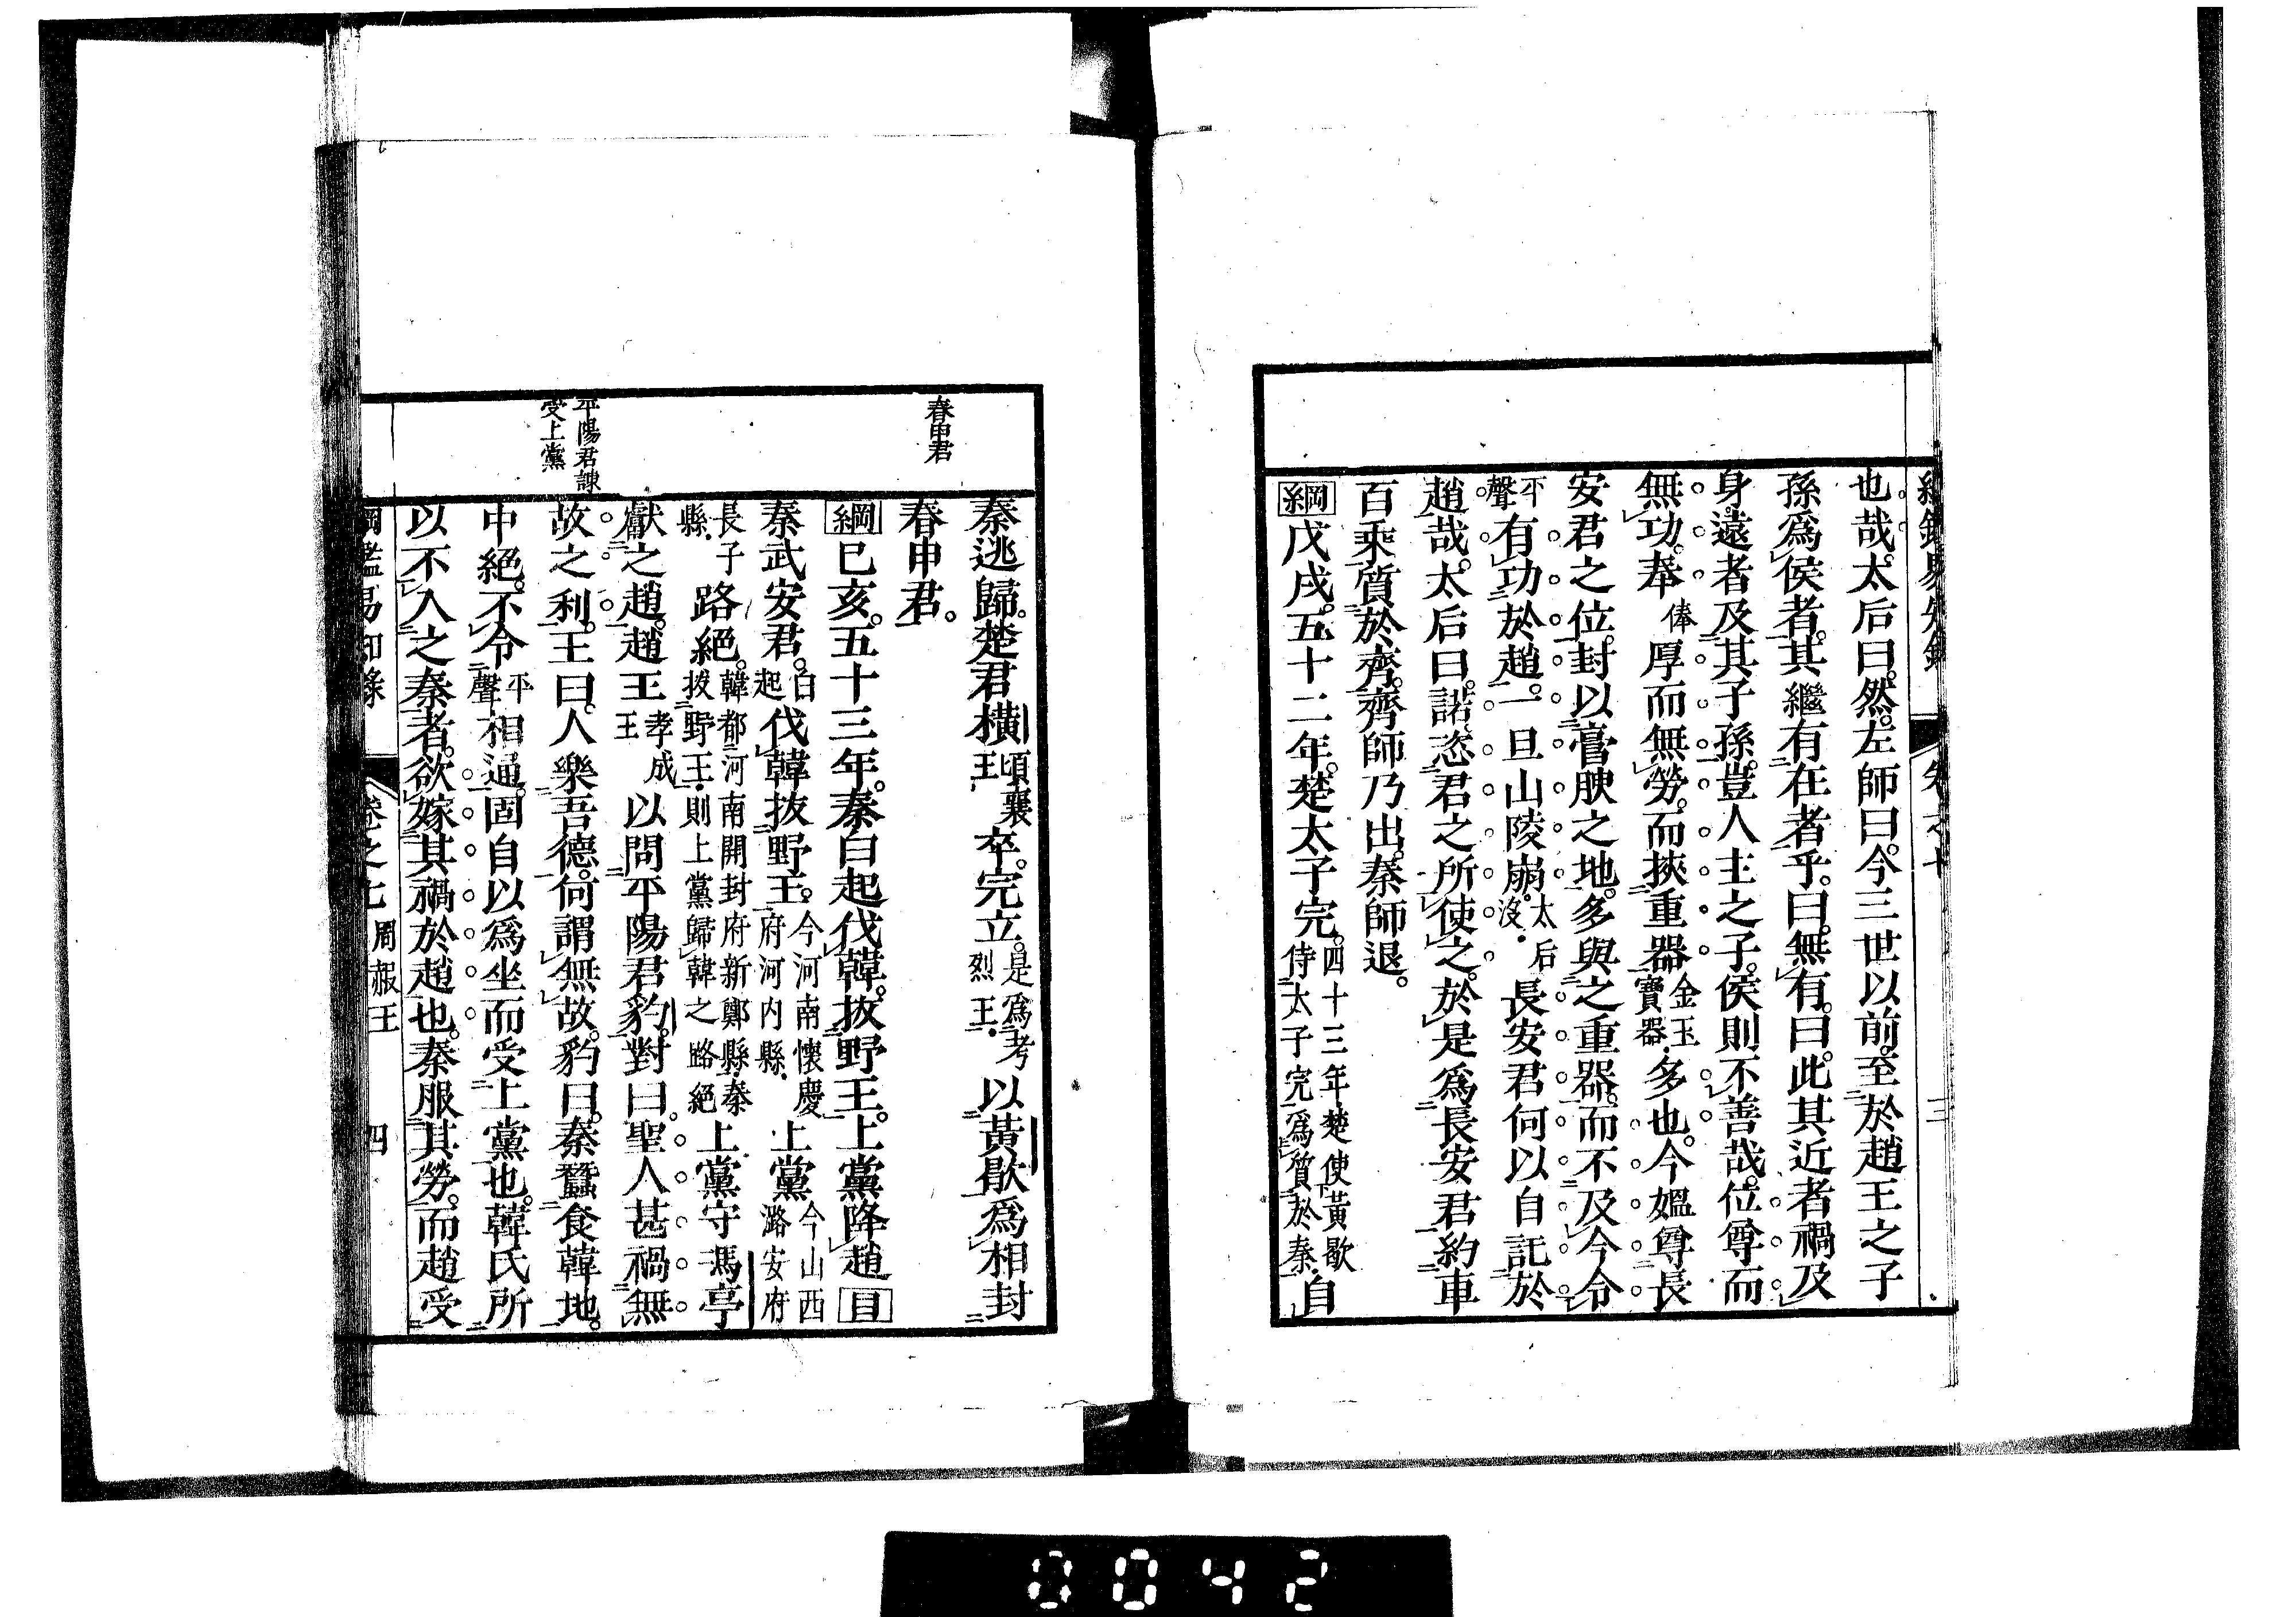 也哉。太后曰。然。左師曰。今三世以前。至於趙王之子
孫爲侯者。其繼有在者乎。曰。無有。曰。此其近者禍及
身。遠者及其子孫。豈人主之子。侯則不善哉。位尊而
無功。奉俸厚而無勞。而挾重器金玉寶器.多也。今媼尊長
安君之位。封以膏腴之地。多與之重器。而不及今令
平聲有功於趙。一旦山陵崩太后沒.長安君何以自託於
趙哉。太后曰。諾。恣君之所使之。於是爲長安君約車
百乘。質於齊。齊師乃出。秦師退。
綱戊戌。五十二年。楚太子完。四十三年楚使黃歇侍太子完爲質於秦.自
春申君
秦逃歸。楚君橫頃襄王卒。完立。是爲考烈王.以黃歇爲相。封
春申君。
綱已亥。五十三年。秦白起伐韓。拔野王。上黨降趙目
秦武安君。白起伐韓拔野王。今河南懷慶府河内縣.上黨今山西潞安府
長子縣.路絕。韓都河南開封府新鄭縣.秦拔野王.則上黨歸韓之路絕上黨守馮亭
獻之趙。趙王孝成王以問平陽君豹。對曰。聖人甚禍無
平陽君諫
受上黨
故之利。王曰。人樂吾德。何謂無故。豹曰。秦蠶食韓地。
中絕。不令平聲相通。固自以爲坐而受上黨也。韓氏所
以不入之秦者。欲嫁其禍於趙也。秦服其勞。而趙受
綱鑑易知錄 卷之七 周赧王 四